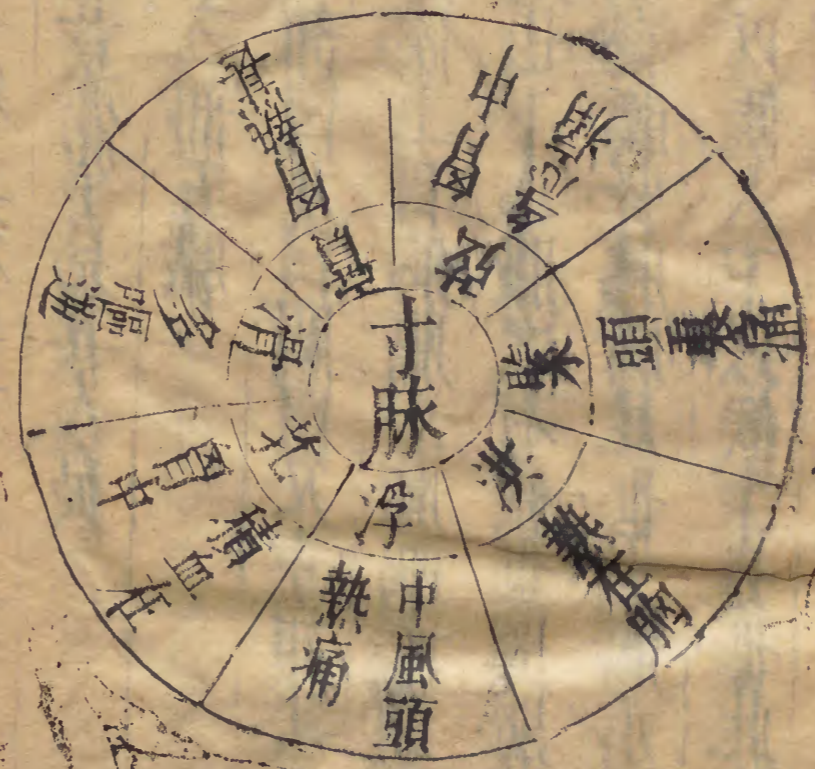 寸脉
浮
中風頭
熱痛
芤
積血在
胷中
滑
多
嘔逆
實
胷熱甚
弦
胷中
急痛
緊
頭裏痛
洪
熱在胸